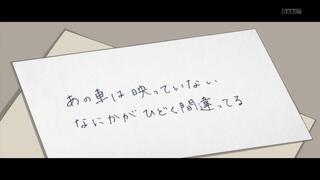 あの車は映っていない
なにかがひどく間違ってる